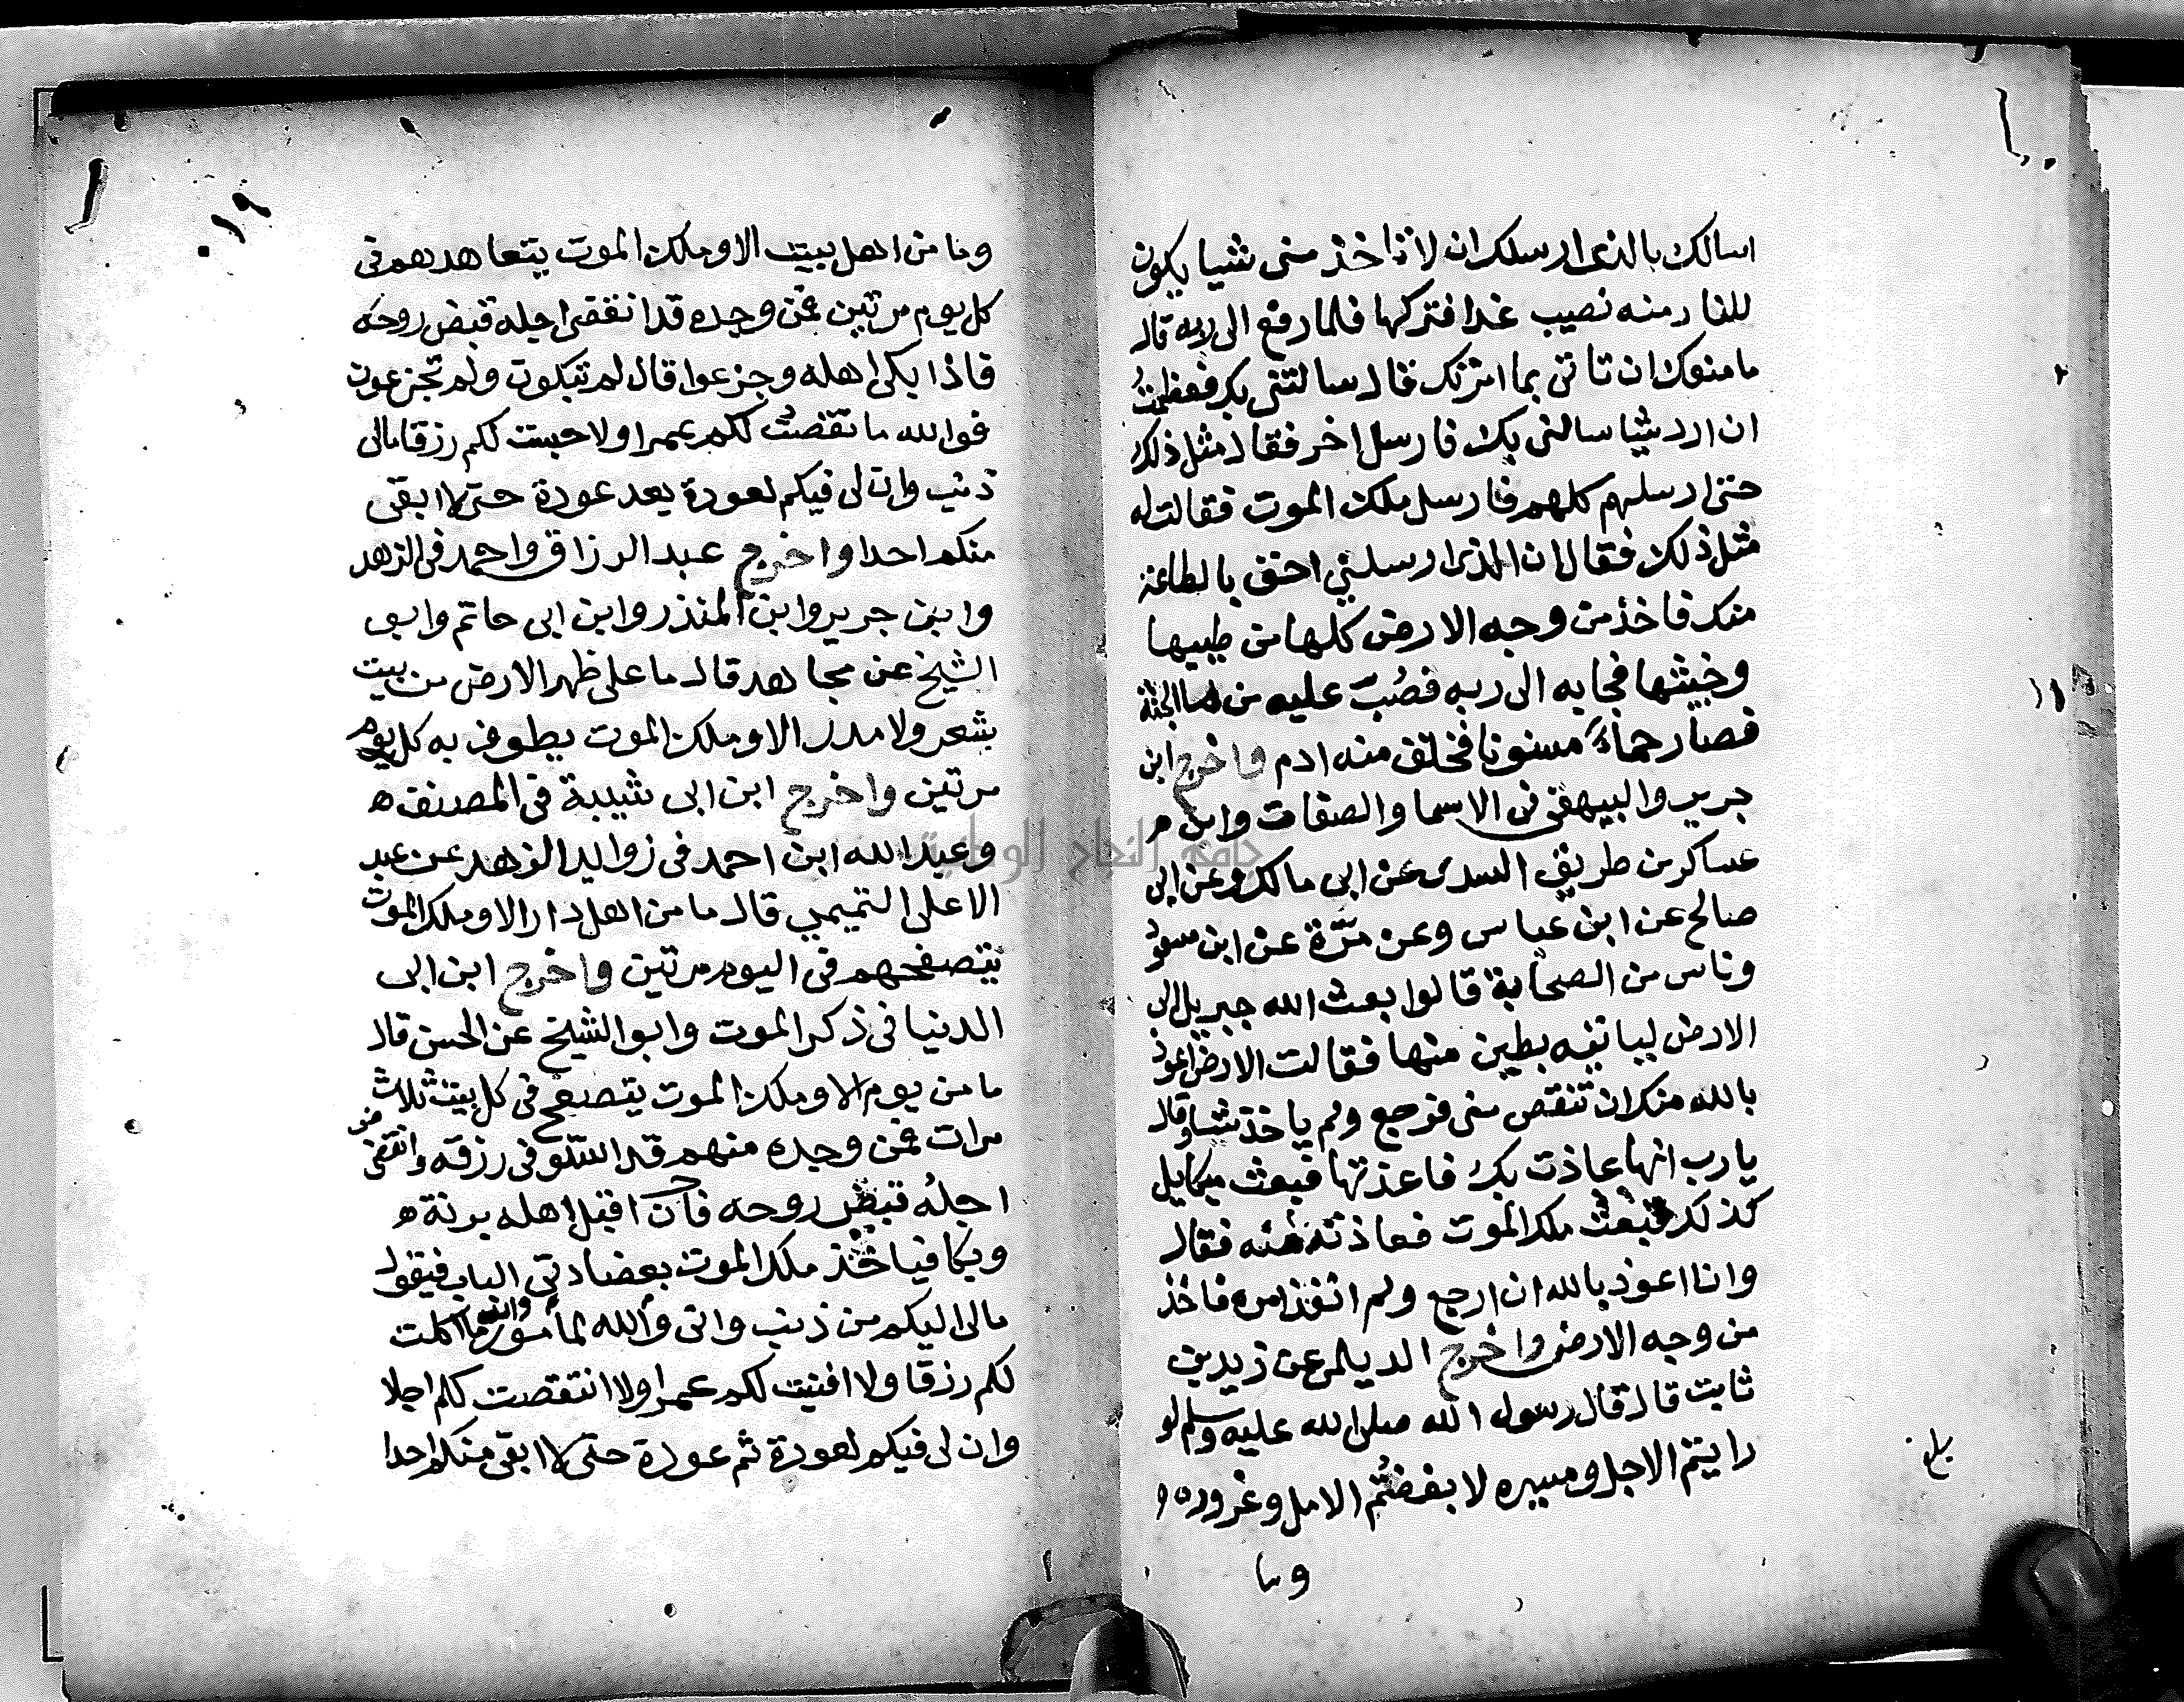 اسالك بالذى ارسلك ان لا تاخذ منى شيا يكون
للنار منه نصيب غدا فتركها فلما رفع الى ربه قال
ما منعك ان تاتى بما امرتك قال سالتنى بك فعظمتُ
ان ارد شيا سالنى بك فارسل اخر فقال مثل ذلك
حتى ارسلهم كلهم فارسل ملك الموت فقالت له
مثل ذلك فقال ان الذى ارسلنى احق بالطاعة
منك فاخذ من وجه الارض كلها من طيبها
وخبيثها فجا به الى ربه فصُبّ عليه من ما الجنة
فصار حماءً مسنونا فخلق منه ادم واخرج ابن
جرير والبيهقى فى الاسما والصفات وابن
عساكر من طريق السدى عن ابى مالك وعن ابى
صالح عن ابن عباس وعن مرّة عن ابن مسعود
وناس من الصحابة قالوا بعث الله جبريل الى
الارض لياتيه بطين منها فقالت الارض اعوذ
بالله منك ان تنقص منى فرجع ولم ياخذ شيا وقال
يا رب انها عاذت بك فاعذتها فبعث ميكايل
كذلك فبعث ملك الموت فعاذت منه فقال
وانا اعوذ بالله ان ارجع ولم انفذ امره فاخذ
من وجه الارض واخرج الديلمى عن زيد بن
ثابت قال قال رسول الله صلى الله عليه وسلم لو
رايتم الاجل ومسيره لابغضتُم الامل وغروره
وما
بلغ
١٩
وما من اهل بيت الا وملك الموت يتعاهدهم فى
كل يوم مرتين فمن وجده قد انقضى اجله قبض روحه
فاذا بكى اهله وجزعوا قال لم تبكون ولم تجزعون
فوالله ما نقصتُ لكم عمرا ولا حبست لكم رزقا مالى
ذنب وان لى فيكم لعودة بعد عودة حتى لا ابقى
منكم احدا واخرج عبد الرزاق واحمد فى الزهد
وابن جرير وابن المنذر وابن ابى حاتم وابو
الشيخ عن مجاهد قال ما على ظهر الارض من بيت
شعر ولا مدر الا وملك الموت يطوف به كل يوم
مرتين واخرج ابن ابى شيبة فى المصنف ه
وعبد الله ابن احمد فى زوايد الزهد عن عبد
الاعلى التميمى قال ما من اهل دار الا وملك الموت
يتصفحهم فى اليوم مرتين واخرج ابن ابى
الدنيا فى ذكر الموت وابو الشيخ عن الحسن قال
ما من يوم الا وملك الموت يتصفح فى كل بيت ثلاث
مرات فمن وجده منهم قد استوفى رزقه وانقضى
اجلُه قبض روحه فان اقبل اهله برنة ه
وبكا فياخذ ملك الموت بعضادتى الباب فيقول
مالى اليكم من ذنب وانى والله لمأمور والله ما اكلت
لكم رزقا ولا افنيت لكم عمرا ولا انتقصت لكم اجلا
وان لى فيكم لعودة ثم عودة حتى لا ابقى منكم احدا
جامعة النجاح الوطنية